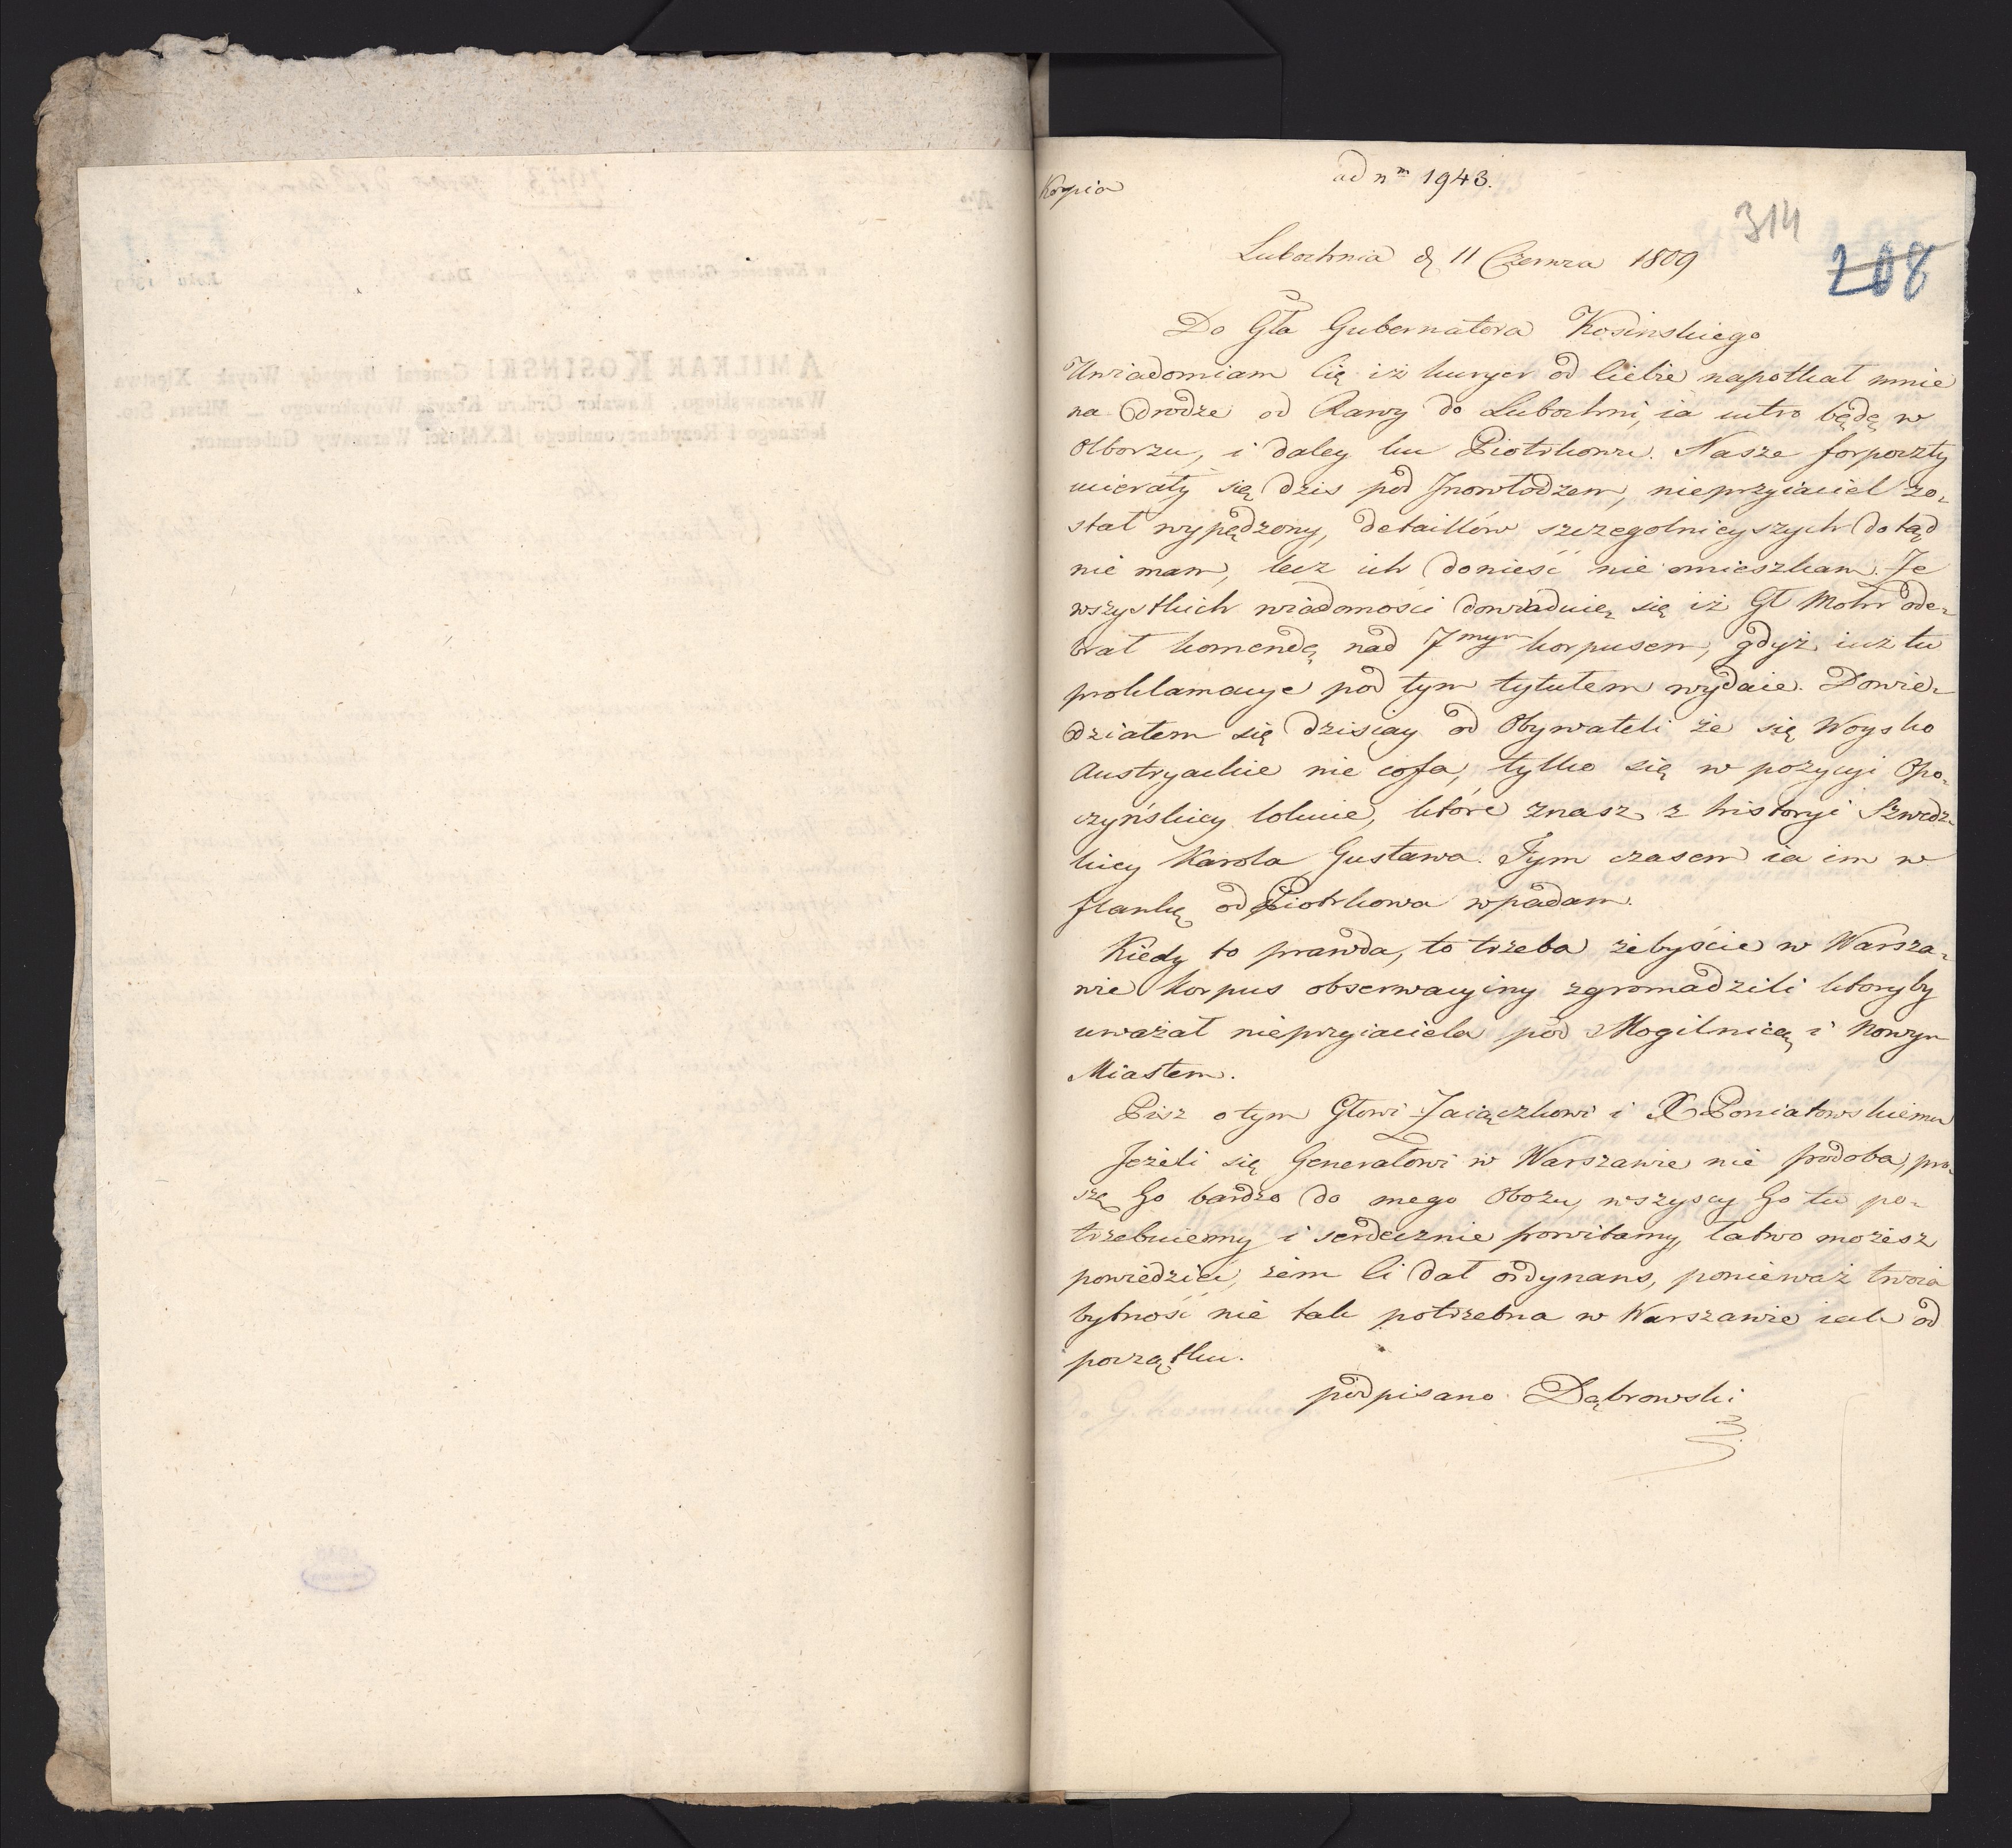 Kopia
ad nm 1943.
314
208
Lubochnia d. 11 Czerwca 1809
Do Gła Gubernatora Kosinskiego
Uwiadomiam Cię iż kuryer od Ciebie napotkał mnie
na drodze od Rawy do Lubochni, ia iutro będę w
Olborzu, i daley ku Piotrkowu. Nasze forpoczty
ucierały się dzis pod Jnowłodzem, nieprzyiaciel zo-
stał wypędzony, detaillów szczegolnieyszych dotąd
nie mam, lecz ich donieść nie omieszkam. Ze
wszystkich wiadomości dowiaduię się iż Gł Mohr ode-
brał komendę nad 7mym korpusem, gdyż iuż tu
proklamacye pod tym tytułem wydaie. Dowie-
działem się dzisiay od Obywateli że się Woysko
Austryackie nie cofa, tylko się w pozycyi Opo-
czyńskiey lokuie, które znasz z historyi Szwedz-
kiey Karola Gustawa. Tym czasem ia im w
flankę od Piotrkowa wpadam.
Kiedy to prawda, to trzeba żebyście w Warsza-
wie korpus obserwacyiny zgromadzili ktoryby
uważał nieprzyiaciela pod Mogilnicą i Nowym
Miastem.
Pisz o tym Głowi Zaiączkowi i X Poniatowskiemu
Jeżeli się Generałowi w Warszawie nie podoba, pro-
szę Go bardzo do mego Obozu, wszyscy Go tu po-
trzebuiemy i serdecznie powitamy, łatwo możesz
powiedzieć, żem Ci dał ordynans, ponieważ twoia
bytność nie tak potrzebna w Warszawie iak od
początku.
podpisano Dąbrowski